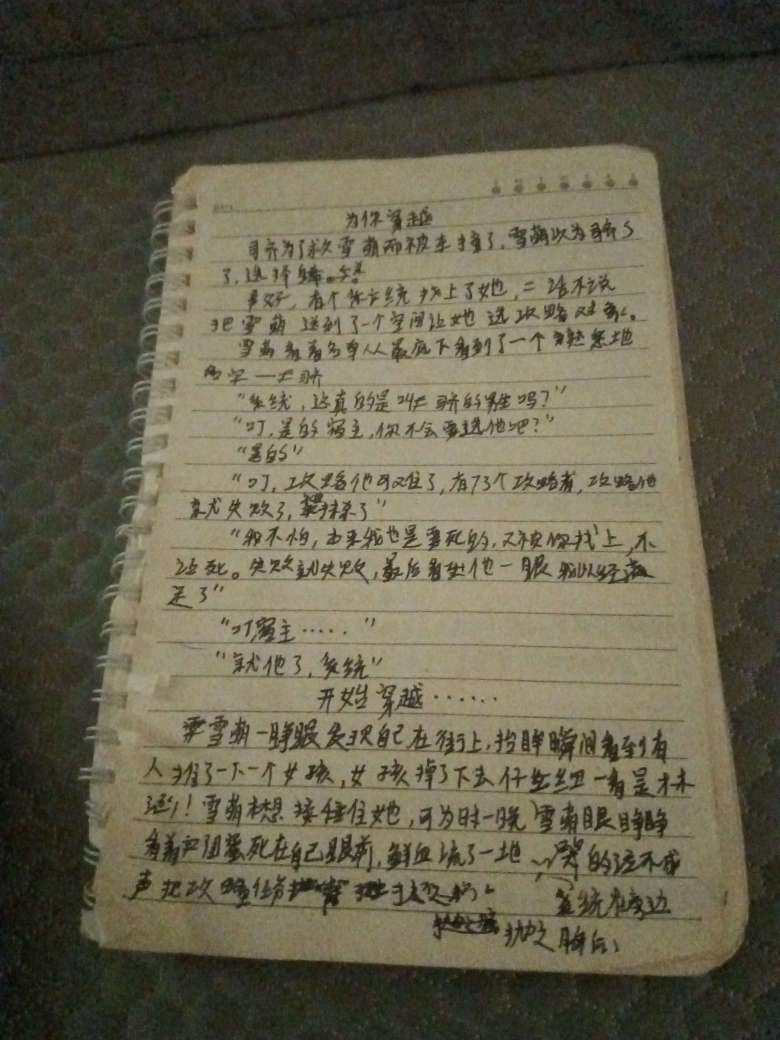 为你穿越
为了救雪萌而被车撞了,雪萌以为
了,选择
有个系统找上了她,二话不说
把雪萌送到了一个空间让她选攻略对象。
雪萌看着名单从最底下看到了一个熟悉地
名字一
"系统,这真的是叫 的男生吗?"
"叮,是的宿主,你不会要选他吧?"
"是的"
"叮,攻略他可难了,有73个攻略者,攻略他
就失败了,抹杀了"
"我不怕,本来我也是要死的,又被你找上,不
还死。失败就失败,最后看他一眼我以经满
足了"
"叮宿主……"
"就他了,系统"
开始穿越……
雪萌一睁眼发现自己在街上,抬眸瞬间看到有
人推了一下一个女孩,女孩掉了下去仔细一看是林
!雪萌本想接住她,可为时一晚,雪萌眼睁睁
看着 死在自己眼前,鲜血流了一地 哭的泣不成
声把攻略任务
系统在旁边
抛之脑后